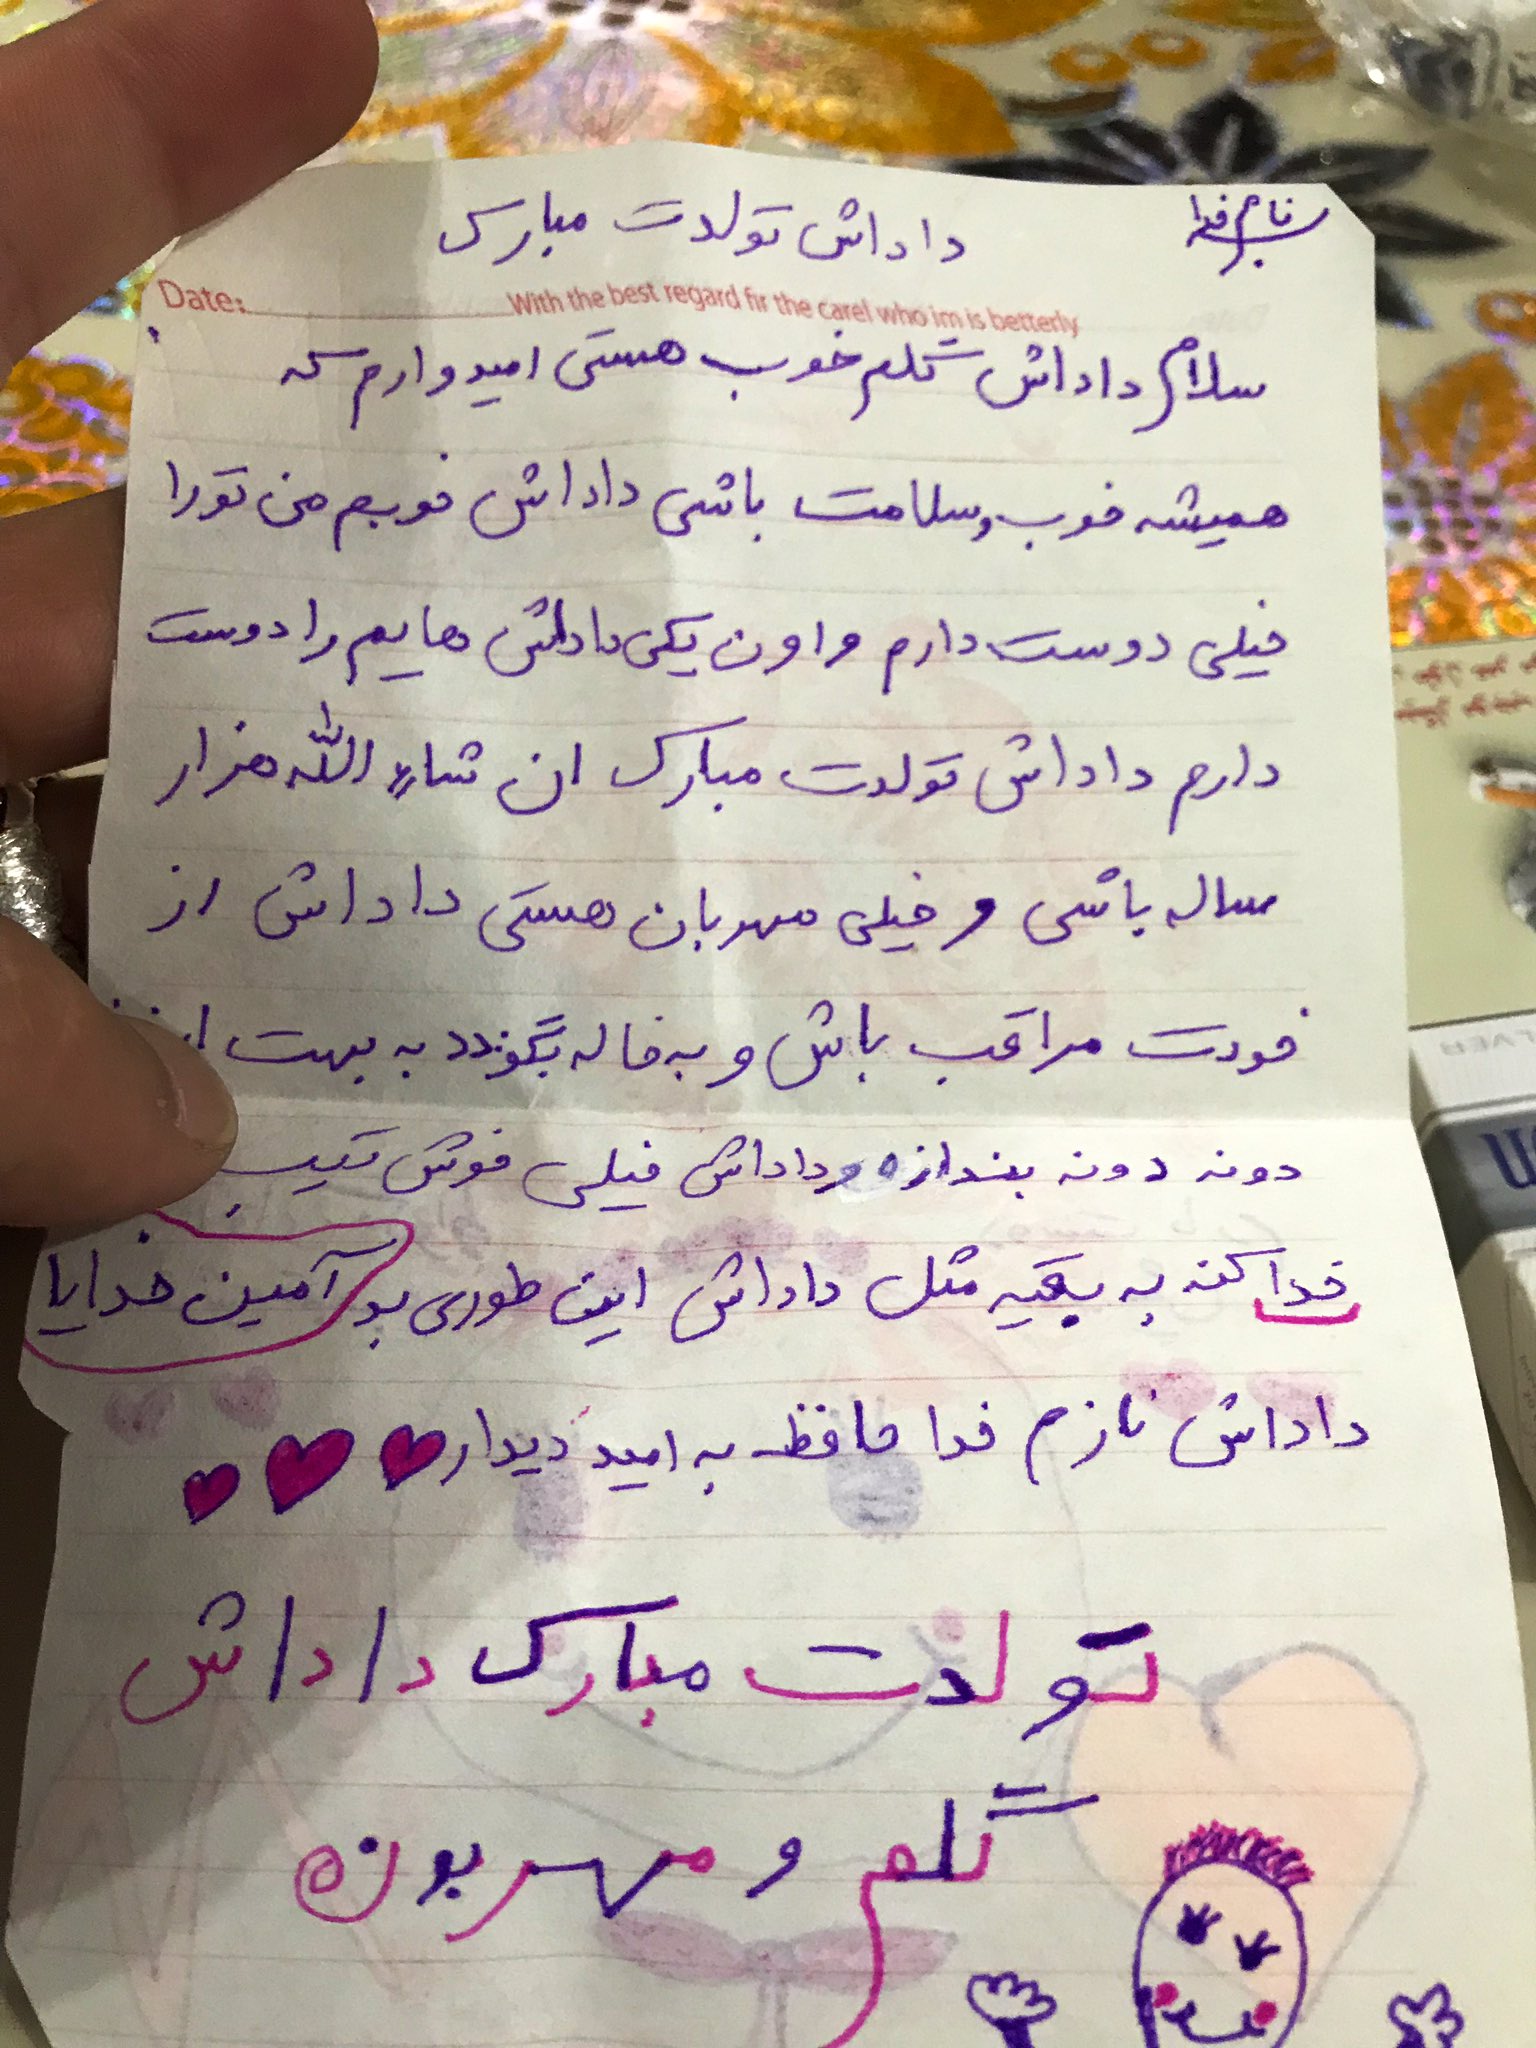 بنام خدا
داداش تولدت مبارک
Date: With the best regard fir the carel who im is betterly
سلام داداش گلم خوب هستی امیدوارم که
همیشه خوب و سلامت باشی داداش خوبم من تو را
خیلی دوست دارم و اون یکی داداش هایم را دوست
دارم داداش تولدت مبارک ان شاء الله هزار
ساله باشی و خیلی مهربان هستی داداش از
خودت مراقب باش و به خاله بگوندد به بهت
دونه دونه بندازه و داداش خیلی خوش تیپ
خدا کنه به بقیه مثل داداش این طوری بو آمین خدایا
داداش نازم خدا حافظ به امید دیدار
تولدت مبارک داداش
گلم و مهربون